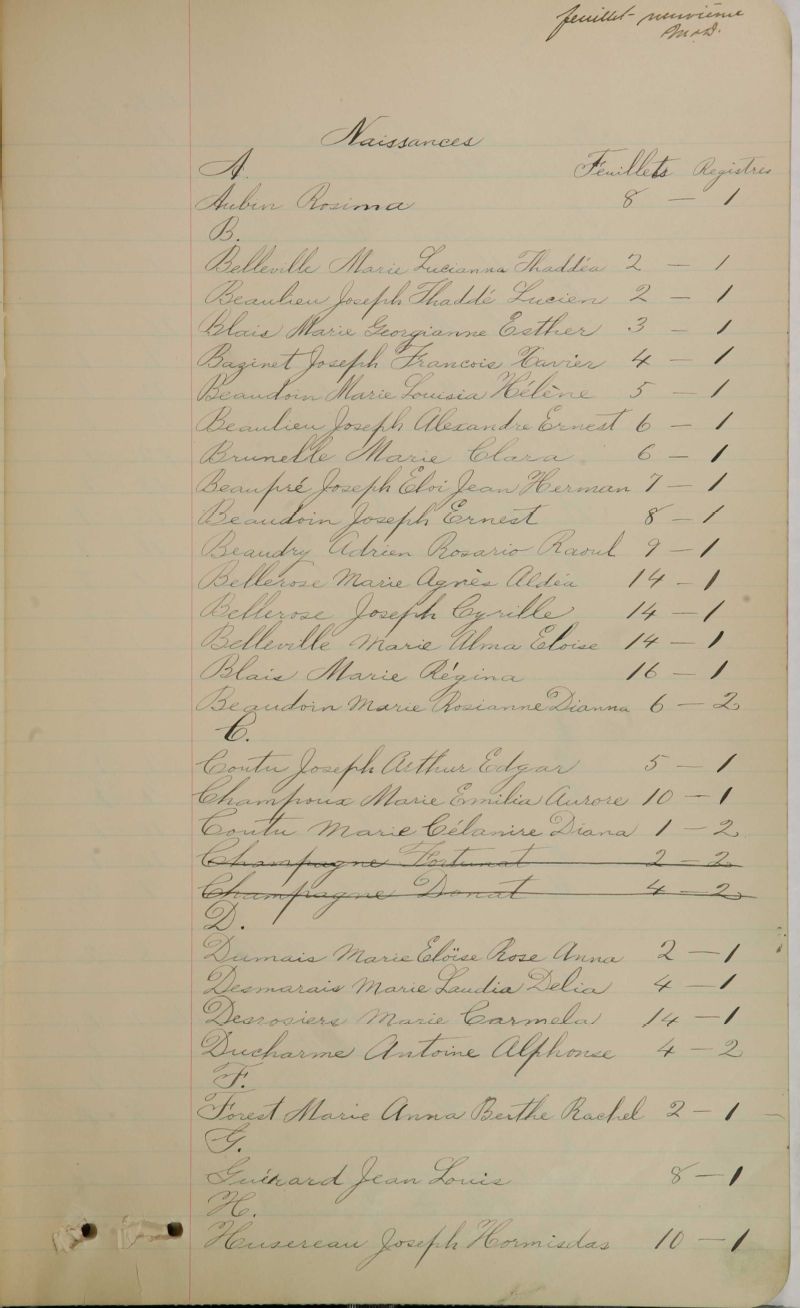 feuillet neuvième
Naissances
A. Feuillets Registres
Aubin Rosima 8 — 1
B.
Belleville Marie Lucianna Thaddéa 2 — 1
Beaulieu Joseph Thaddé Lucien 2 — 1
Blais Marie Georgianne Esther 3 — 1
Bazinet Joseph Francois Xavier 4 — 1
Beaudoin Marie Louisia Hélène 5 — 1
Beaulieu Joseph Alexandre Ernest 6 — 1
Brunelle Marie Clara 6 — 1
Beaupré Joseph Eloi Jean Herman 7 — 1
Beaudoin Joseph Ernest 8 — 1
Beaudry Adrien Rosario Raoul 9 — 1
Bellerose Marie Agnès Aldéa 14 — 1
Bellerose Joseph Cyrille 14 — 1
Belleville Marie Alma Eloise 14 — 1
Blais Marie Régina 16 — 1
Beaudoin Marie Rosianne Dianna 6 — 2
C.
Coutu Joseph Arthur Edgar 5 — 1
Champoux Marie Emilia Aurore 10 — 1
Coutu Marie Célanire Diana 1 — 2
Champagne Fortunat 2 — 2
Champagne Donat 4 — 2
D.
Dumais Marie Eloïse Rose Anna 2 — 1
Desmarais Marie Laudia Delia 4 — 1
Desrosiers Marie Carmela 14 — 1
Ducharme Antoine Alphonse 4 — 2
F.
Forest Marie Anna Berthe Rachel 2 — 1
G.
Guérard Jean Louis 8 — 1
H.
Husereau Joseph Hormisdas 10 — 1